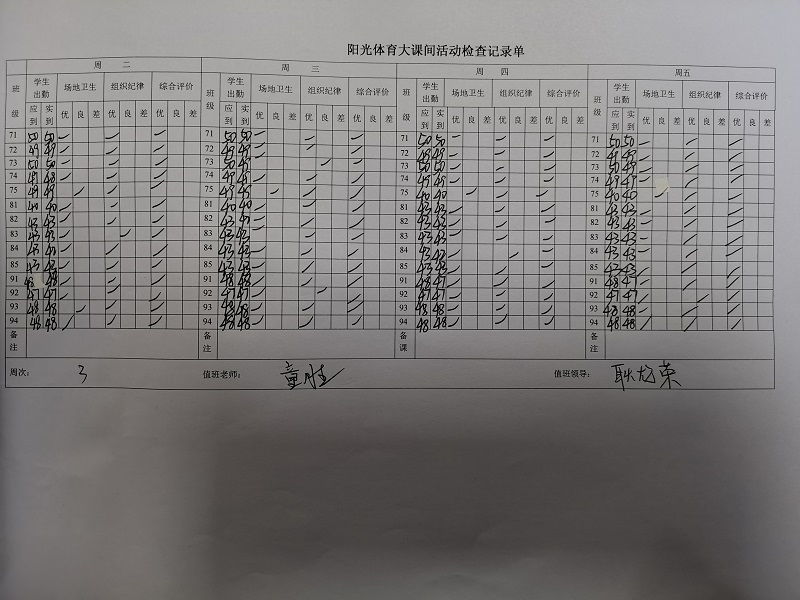 阳光体育大课间活动检查记录单
周 二 周 三 周 四 周五
班级 学生出勤 场地卫生 组织纪律 综合评价 班级 学生出勤 场地卫生 组织纪律 综合评价 班级 学生出勤 场地卫生 组织纪律 综合评价 班级 学生出勤 场地卫生 组织纪律 综合评价
应到 实到 优 良 差 优 良 差 优 良 差 应到 实到 优 良 差 优 良 差 优 良 差 应到 实到 优 良 差 优 良 差 优 良 差 应到 实到 优 良 差 优 良 差 优 良 差
71 50 50 71 50 50 71 50 50 71 50 50
72 49 49 72 49 49 72 49 49 72 49 49
73 50 50 73 50 50 73 50 50 73 50 50
74 74 49 74 49 49 74 49 49
75 49 49 75 49 49 75 40 40 75 40 40
81 40 40 81 40 40 81 43 43 81 43 43
82 43 43 82 43 82 43 43 82 43 43
83 43 43 83 43 83 43 43 83 43 43
84 43 84 43 43 84 43 84 43 43
85 43 85 43 43 85 43 43 85 43 43
91 48 48 91 48 48 91 48 48 91 48 47
92 47 47 92 47 47 92 47 47 92 47 47
93 48 48 93 48 48 93 48 48 93 48 48
94 48 48 94 48 48 94 48 48 94 48 48
备注 备注 备课 备注
周次: 3 值班老师: 童 值班领导: 耿 荣